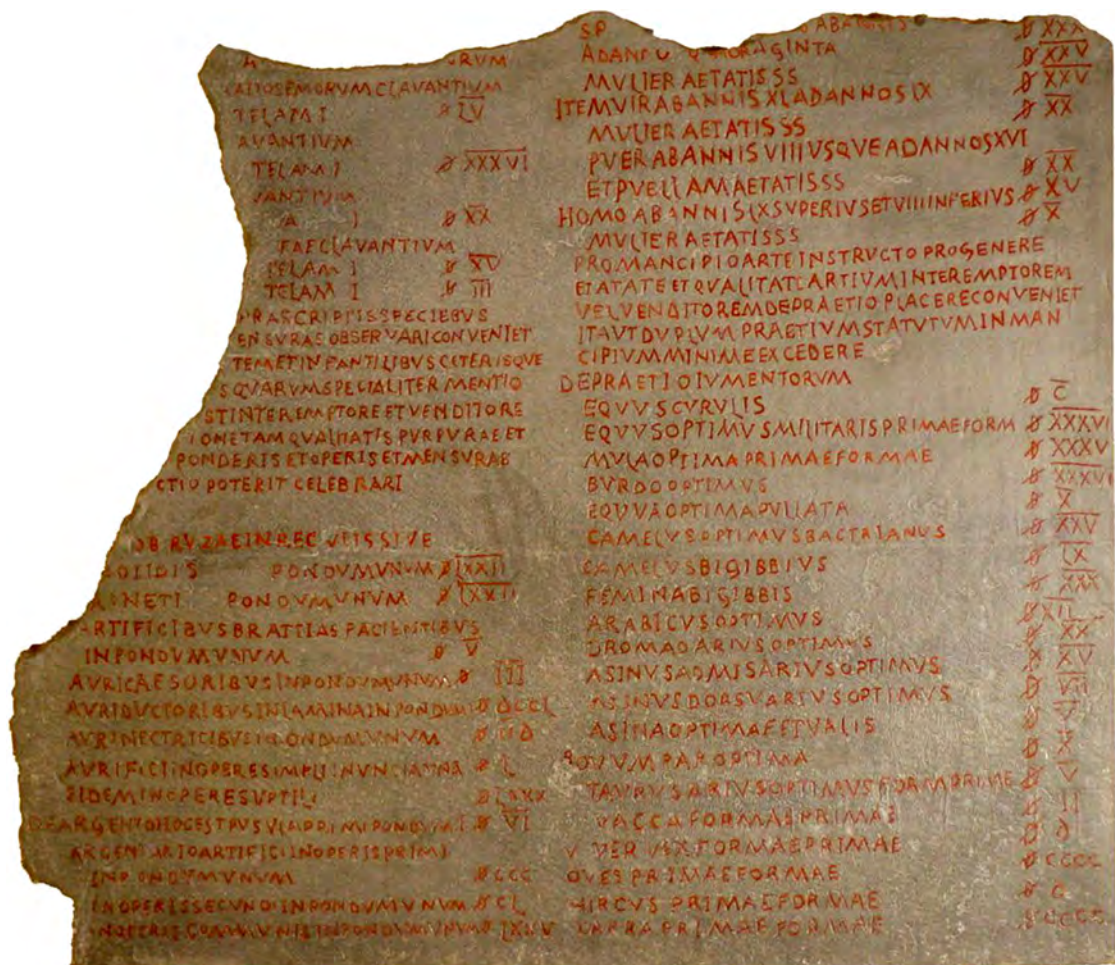 RVM
CATTOSEMORVMCLAVANTIVM
TELAM I 𐆖 LV
AVANTIVM
TELAM I 𐆖 XXXVI
VANTIVM
A I 𐆖 XX
FAECLAVANTIVM
TELAM I 𐆖 XV
TELAM I 𐆖 III
PRASCRIPTISSPECIEBVS
ENSVRASOBSERVARICONVENIET
TEMETINPANTILIBVSCETERISQVE
SQVARVMSPECIALITERMENTIO
STINTEREMPTOREETVENDITORE
IONETAMQVALITATISPVRPVRAEET
PONDERISETOPERISETMENSVRAE
CTIOPOTERITCELEBRARI
OBRVZAEINREGVLISSIVE
SOLIDIS PONDVMVNVM 𐆖 LXXII
RONETI PONDVMVNVM 𐆖 LXXII
ARTIFICIBVSBRATTIASFACIENTIBVS
INPONDVMVNVM 𐆖 V
AVRICAESORIBVSINPONDVMVNVM 𐆖 III
AVRIDVCTORIBVSINLAMINAINPONDVMI 𐆖 DCCL
AVRINECTRICIBVSINPONDVMVNVM 𐆖
AVRIFICIINOPERESIMPLIINVNCIAVNA 𐆖 L
EIDEMINOPERESVPTILI 𐆖 LXXX
DEARGENTOHOCESTPVSVLAPRIMIPONDVMI 𐆖 VI
ARGENTARIOARTIFICIINOPERISPRIMI
INPONDVMVNVM 𐆖 CCC
INOPERISSECVNDIINPONDVMVNVM 𐆖 CL
INOPERISCOMMVNISINPONDVMVNVM 𐆖 LXXV
SP 𐆖 XXX
𐆖 XXV
MVLIERAETATISSS 𐆖 XXV
ITEMVIRABANNISXLADANNOSLX 𐆖 XX
MVLIERAETATISSS
PVERABANNISVIIIVSQVEADANNOSXVI 𐆖 XX
ETPVELLAMAETATISSS 𐆖 XV
HOMOABANNISLXSVPERIVSETVIIIINFERIVS 𐆖 X
MVLIERAETATISSS
PROMANCIPIOARTEINSTRVCTOPROGENERE
ETATATEETQVALITATEARTIVMINTEREMPTOREM
VELVENDITOREMDEPRAETIOPLACERECONVENIET
ITAVTDVPLVMPRAETIVMSTATVTVMINMAN
CIPIVMMINIMEEXCEDERE
DEPRAETIOIVMENTORVM
EQVVSCVRVLIS 𐆖 C
EQVVSOPTIMVSMILITARISPRIMAEFORM 𐆖 XXXVI
MVLAOPTIMAPRIMAEFORMAE 𐆖 XXXV
BVRDOOPTIMVS 𐆖 XXXVI
EQVVAOPTIMAPVLLATA 𐆖 X
CAMELVSOPTIMVSBACTRIANVS 𐆖 XXV
CAMELVSBIGIBBIVS 𐆖 LX
FEMINABIGIBBIS 𐆖 XXX
ARABICVSOPTIMVS 𐆖 XII
DROMADARIVSOPTIMVS 𐆖 XX
ASINVSADMISARIVSOPTIMVS 𐆖 XV
ASINVSDORSVARIVSOPTIMVS 𐆖 VII
ASINAOPTIMAEETVALIS 𐆖 V
BOVVMPAROPTIMA 𐆖 X
TAVRVSARIVSOPTIMVSFORMPRIME 𐆖 V
VACCAFORMASPRIMAE 𐆖 II
VERVEXFORMAEPRIMAE 𐆖 D
OVESPRIMAEFORMAE 𐆖 CCCC
HIRCVSPRIMAEFORMAE 𐆖 C
CAPRAPRIMAEFORMAE 𐆖 CCCC